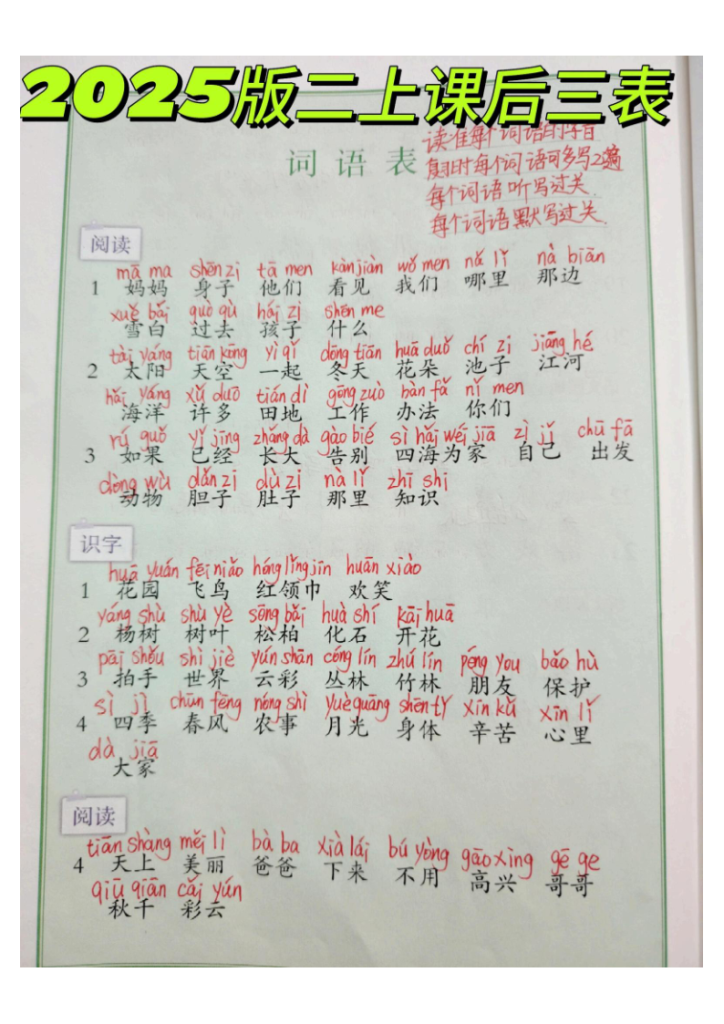 2025版二上课后三表
词语表
读准每个词语的字音
复习时每个词语可多写2遍
每个词语听写过关.
每个词语默写过关.
阅读
mā ma shēn zi tā men kàn jiàn wǒ men nǎ lǐ nà biān
1 妈妈 身子 他们 看见 我们 哪里 那边
xuě bái guò qù hái zi shén me
雪白 过去 孩子 什么
tài yáng tiān kōng yì qǐ dōng tiān huā duǒ chí zi jiāng hé
2 太阳 天空 一起 冬天 花朵 池子 江河
hǎi yáng xǔ duō tián dì gōng zuò bàn fǎ nǐ men
海洋 许多 田地 工作 办法 你们
rú guǒ yǐ jīng zhǎng dà gào bié sì hǎi wéi jiā zì jǐ chū fā
3 如果 已经 长大 告别 四海为家 自己 出发
dòng wù dǎn zi dù zi nà lǐ zhī shi
动物 胆子 肚子 那里 知识
识字
huā yuán fēi niǎo hóng lǐng jīn huān xiào
1 花园 飞鸟 红领巾 欢笑
yáng shù shù yè sōng bǎi huà shí kāi huā
2 杨树 树叶 松柏 化石 开花
pāi shǒu shì jiè yún shān cóng lín zhú lín péng you bǎo hù
3 拍手 世界 云彩 丛林 竹林 朋友 保护
sì jì chūn fēng nóng shì yuè guāng shēn tǐ xīn kǔ xīn lǐ
4 四季 春风 农事 月光 身体 辛苦 心里
dà jiā
大家
阅读
tiān shàng měi lì bà ba xià lái bú yòng gāo xìng gē ge
4 天上 美丽 爸爸 下来 不用 高兴 哥哥
qiū qiān cǎi yún
秋千 彩云